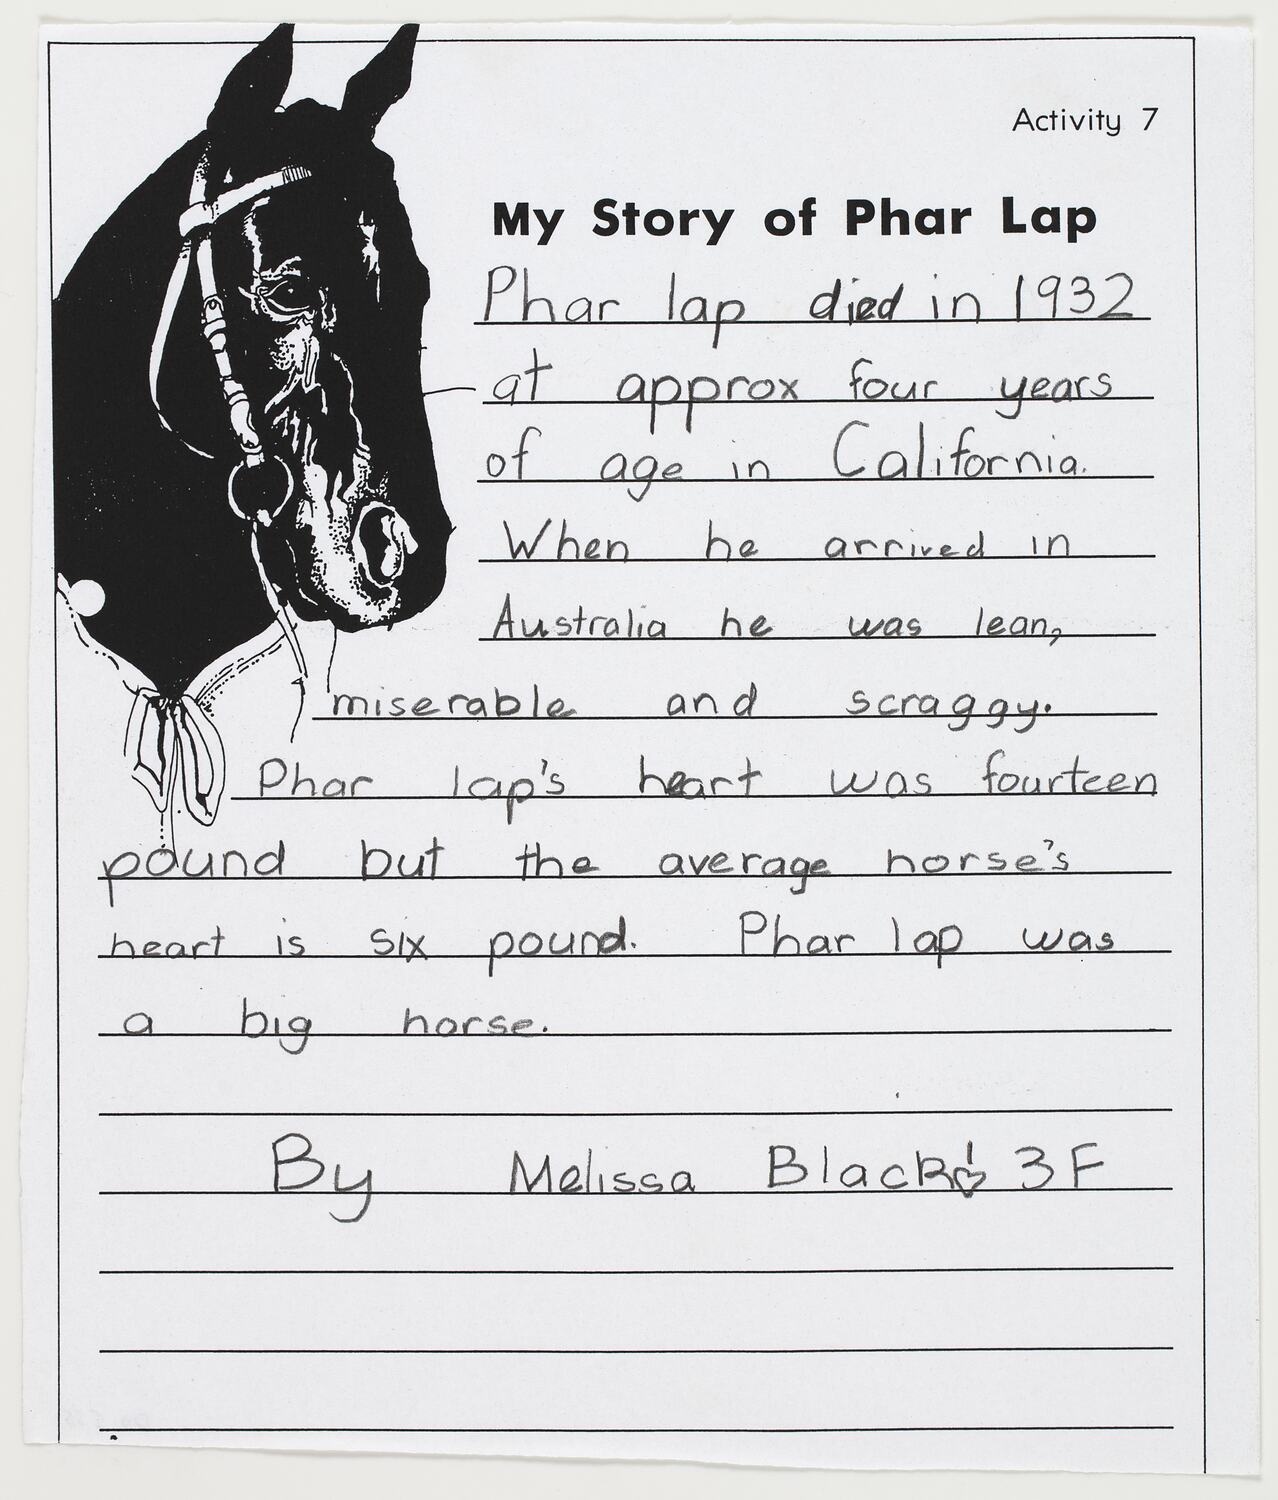 Activity 7
My Story of Phar Lap
Phar lap died in 1932
at approx four years
of age in California.
When he arrived in
Australia he was lean,
miserable and scraggy.
Phar lap's heart was fourteen
pound but the average horse's
heart is six pound. Phar lap was
a big horse.
By Melissa Black 3F